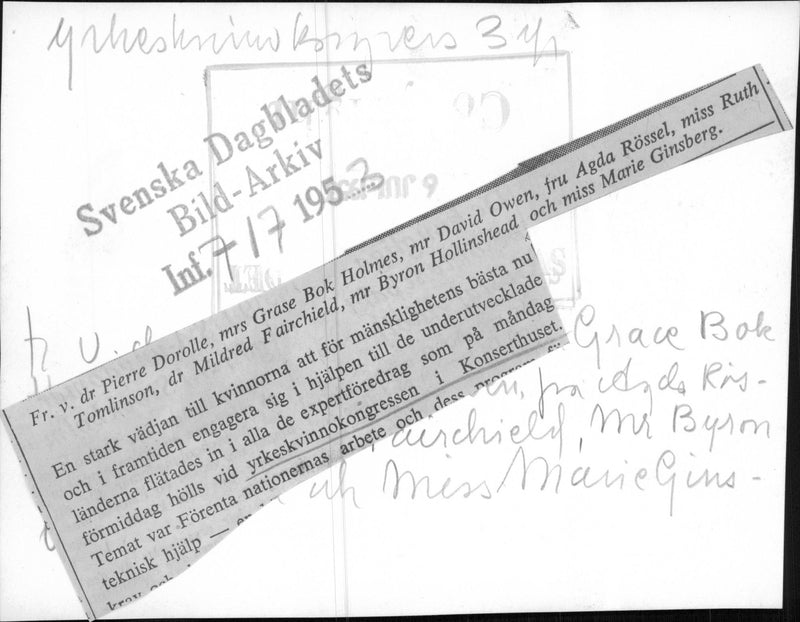 3
Svenska Dagbladets
Bild-Arkiv
Inf. 7/7 1953
Fr. v. dr Pierre Dorolle, mrs Grase Bok Holmes, mr David Owen, fru Agda Rössel, miss Ruth
Tomlinson, dr Mildred Fairchield, mr Byron Hollinshead och miss Marie Ginsberg.
En stark vädjan till kvinnorna att för mänsklighetens bästa nu
och i framtiden engagera sig i hjälpen till de underutvecklade
länderna flätades in i alla de expertföredrag som på måndag
förmiddag hölls vid yrkeskvinnokongressen i Konserthuset.
Temat var Förenta nationernas arbete och dess program
teknisk hjälp —
Grace Bok
fru Agda Rös-
Mr Byron
och Miss Marie Gins-